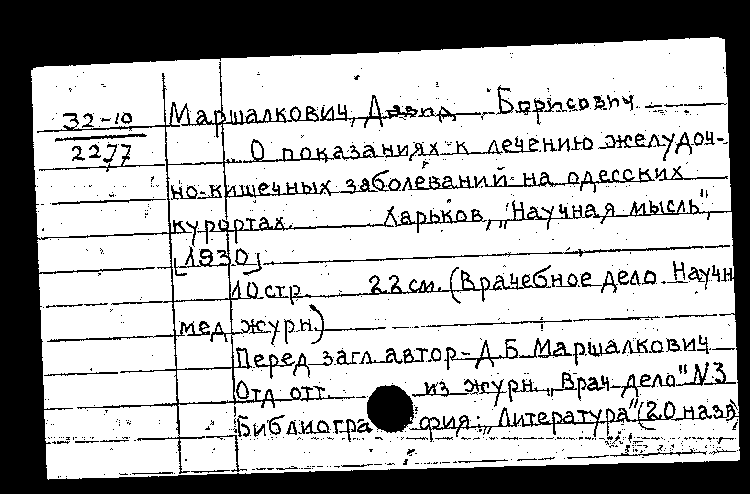 32-10
2277
Маршалкович, Давид Борисович
О показаниях к лечению желудоч-
но-кишечных заболеваний на одесских
курортах. Харьков, "Научная мысль",
[1930].
10 стр. 22 см. (Врачебное дело. Научн
мед журн.)
Перед загл. автор - Д.Б. Маршалкович
Отд. отт. из журн. "Врач. дело" N3
Библиография: "Литература" (20 назв)